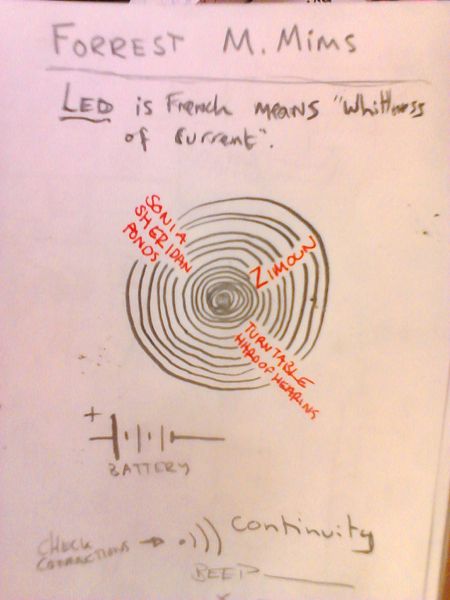 FORREST M. MIMS
LED is French means "Whittness
of Current".
SONIA
SHERIDAN
PONDS
ZIMOUN
TURNTABLE
HARD OF HEARING
+
BATTERY
CHECK
CONNECTIONS
Continuity
BEEP